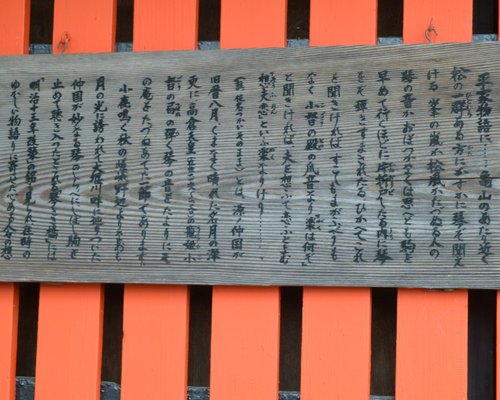 平家物語に……亀山のあたり近く
松の一群ある方にかすかに琴ぞ聞え
ける 峯の嵐か松風かたづぬる人の
琴の音か おぼつかなくは思へども駒を
早めて行くほどに 片折戸したる内に琴
をぞ弾きすまされたる ひかへてこれ
を聞きければ すこしもまがふべうも
なく 小督の殿の爪音なり 楽は何ぞ
と聞きければ 夫を想ふて恋ふとよむ
想夫恋といふ楽なりけり……
は、源 仲国が
旧暦八月、くまなく晴れたる名月の深
更に 高倉天皇の寵姫 小
督の局の弾く琴の音をたよりにそ
の庵をたづねあてた一節であります
小鹿鳴く秋の嵯峨野
月の光に誘われて大堰川畔に
仲国が 妙なる琴のしらべにしばし駒を
止めて聴き入ったところを「琴き橋」と
明治十三年改築の
ゆかしい物語りに